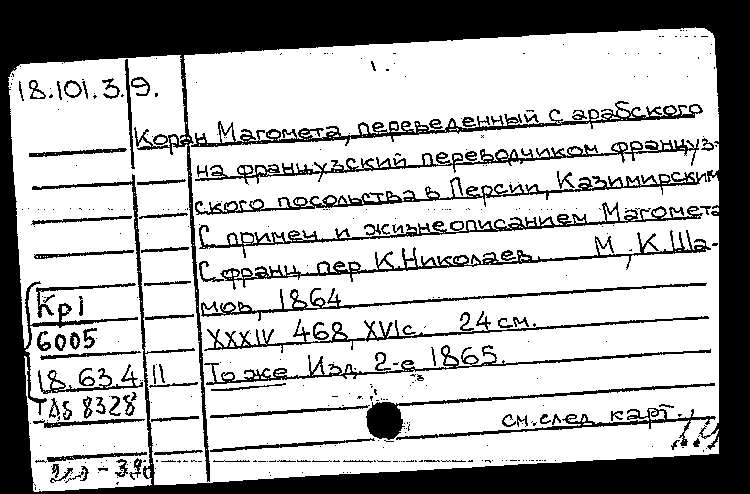 1.
18.101.3.9.
Коран Магомета, переведенный с арабского
на французский переводчиком француз-
ского посольства в Персии, Казимирским
С примеч и жизнеописанием Магомета
С франц. пер К.Николаев. М, К.Ша-
мов, 1864
XXXIV, 468, XVIс. 24 см.
То же Изд. 2-е 1865.
Кр1
6005
18.63.4.11
8328
см.след. карт.